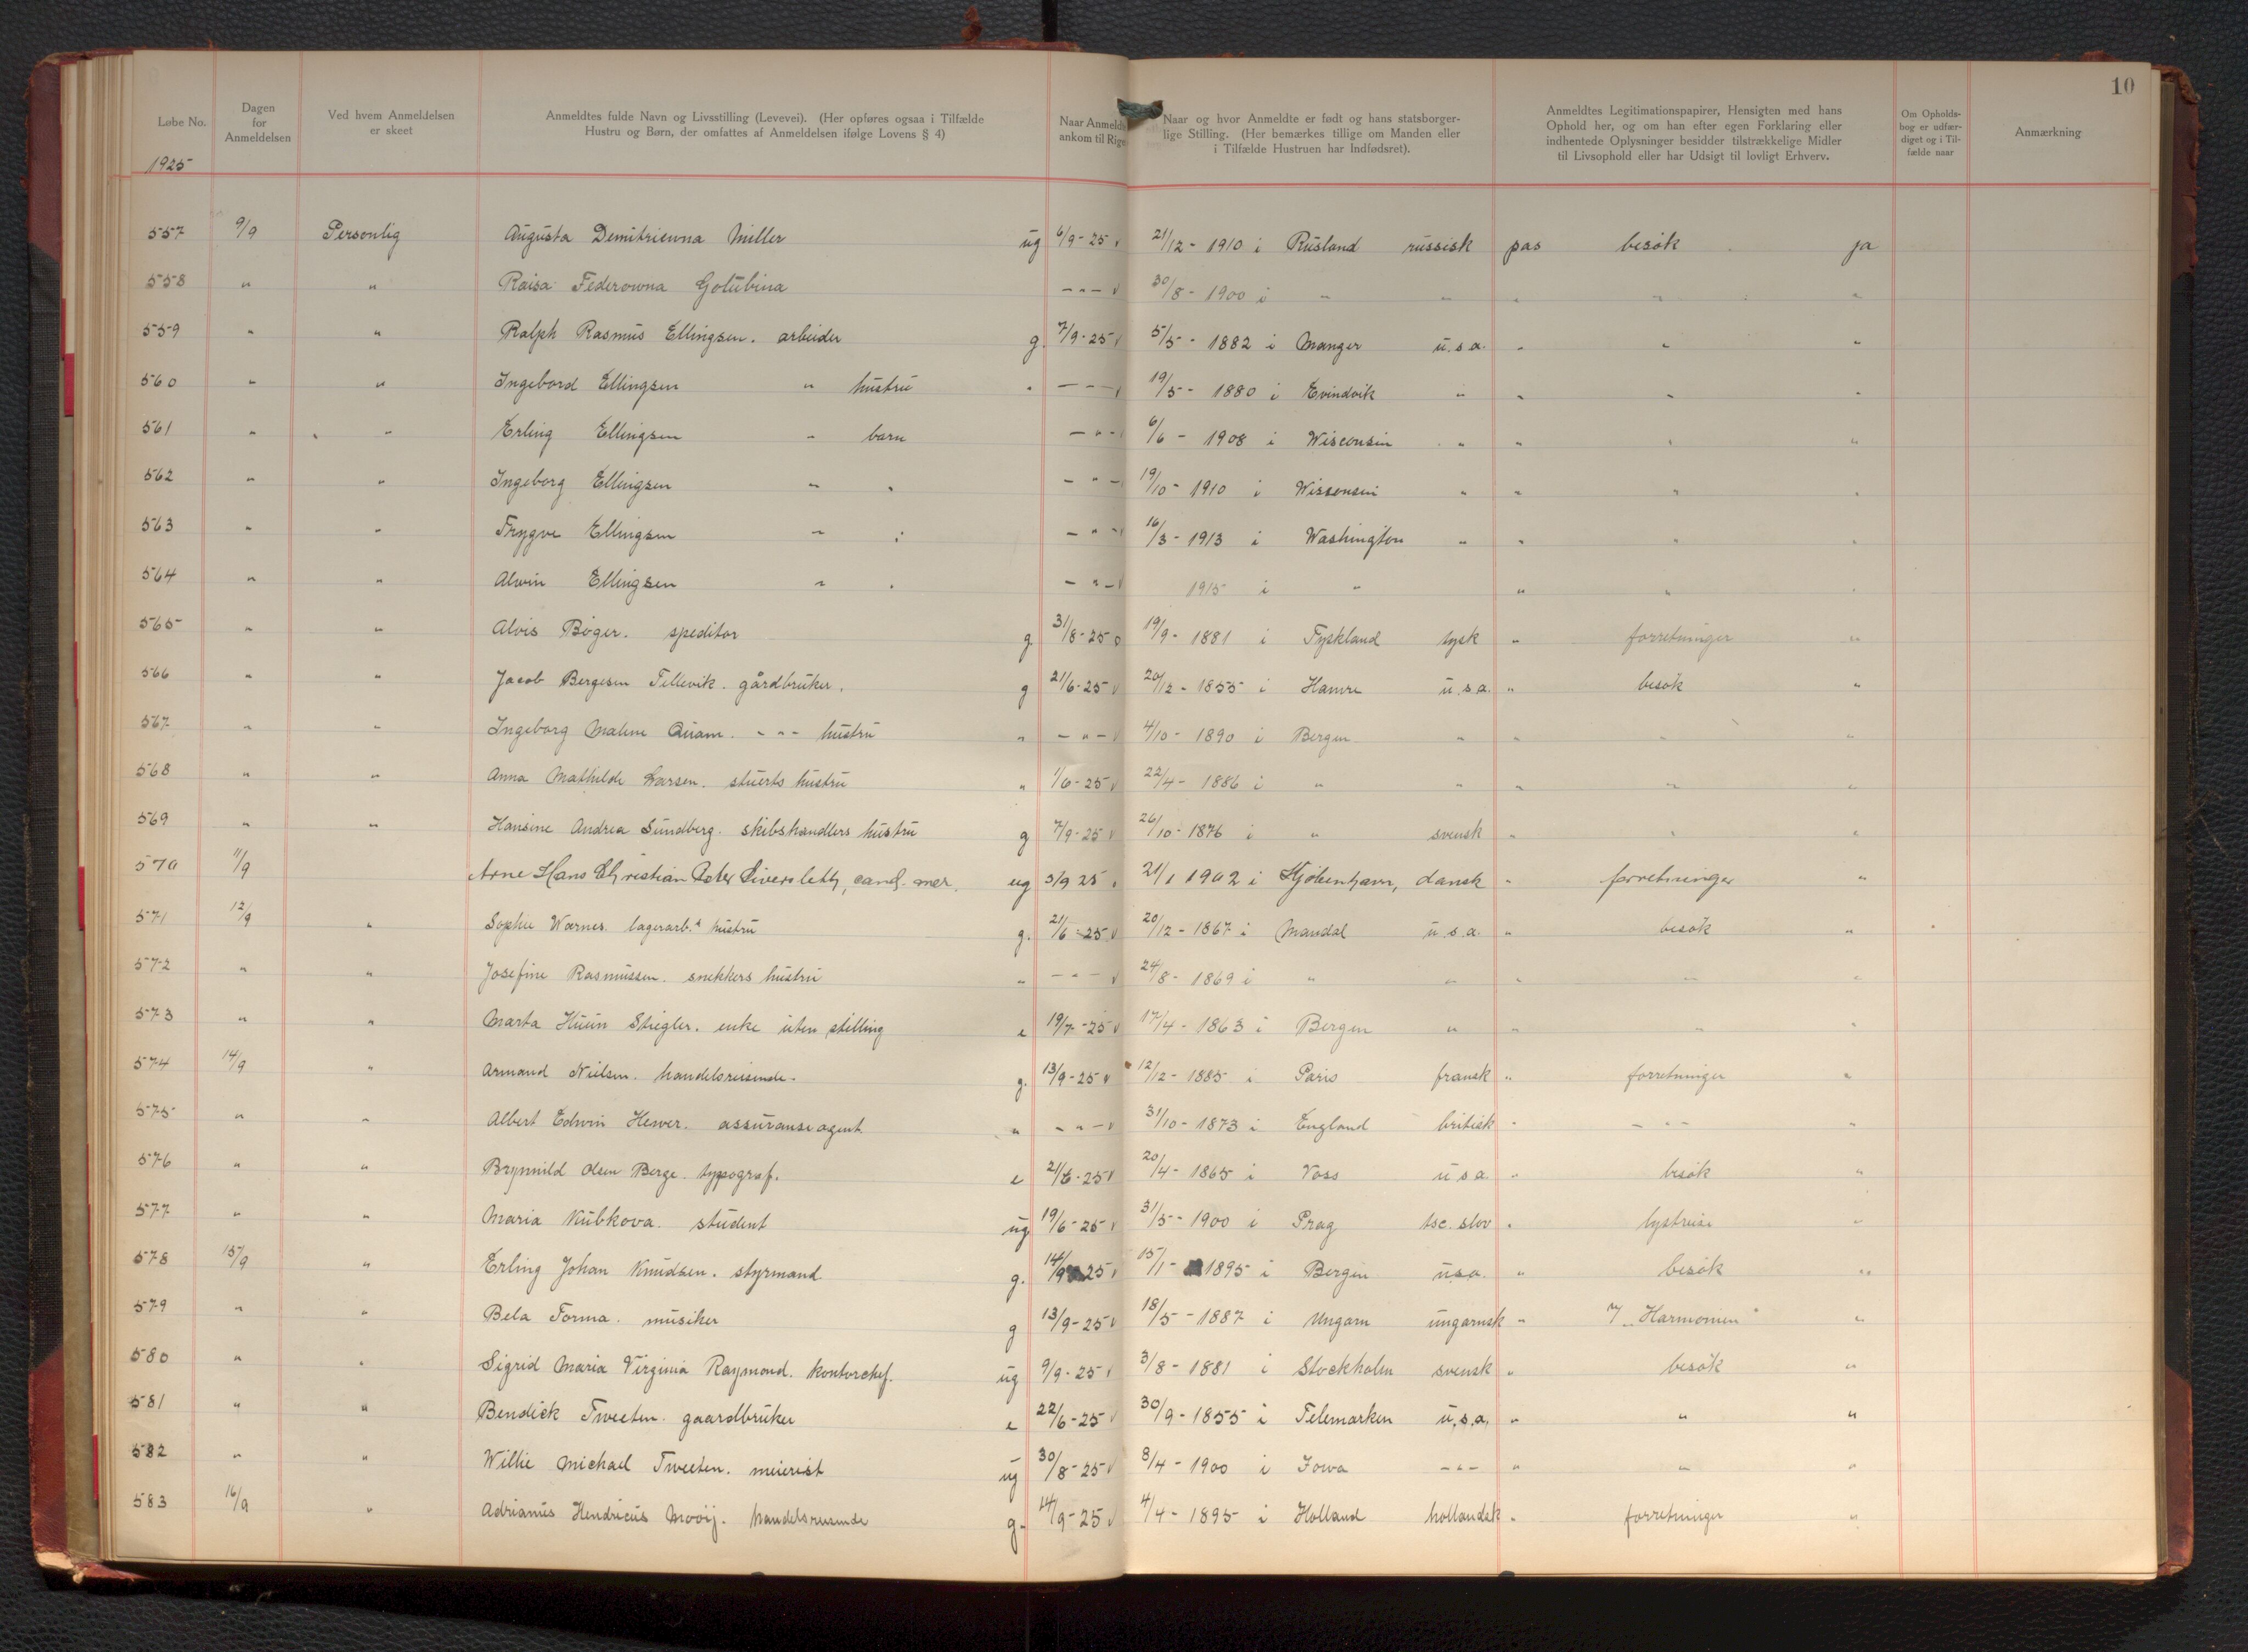 10
Løbe No.
Dagen for Anmeldelsen
Ved hvem Anmeldelsen er skeet
Anmeldtes fulde Navn og Livsstilling (Levevei). (Her opføres ogsaa i Tilfælde Hustru og Børn, der omfattes af Anmeldelsen ifølge Lovens § 4)
Naar Anmeldte ankom til Riget
Naar og hvor Anmeldte er født og hans statsborgerlige Stilling. (Her bemærkes tillige om Manden eller i Tilfælde Hustruen har Indfødsret).
Anmeldtes Legitimationspapirer, Hensigten med hans Ophold her, og om han efter egen Forklaring eller indhentede Oplysninger besidder tilstrækkelige Midler til Livsophold eller har Udsigt til lovligt Erhverv.
Om Opholdsbog er udfærdiget og i Tilfælde naar
Anmærkning
1925
557 9/9 Personlig Augusta Demitrienna Miller ug 6/9-25 v 21/12-1910 i Rusland russisk pas besøk ja
558 " " Raisa Federowna Golubina -"- v 30/8-1900 i " " " " "
559 " " Ralph Rasmus Ellingsen. arbeider g. 7/9-25 v 5/5-1882 i Manger u.s.a. " " "
560 " " Ingebord Ellingsen " hustru " -"- v 19/5-1880 i Evindvik " " " "
561 " " Erling Ellingsen " barn -"- 6/6-1908 i Wisconsin " " " "
562 " " Ingeborg Ellingsen " " -"- 19/10-1910 i Wisconsin " " " "
563 " " Trygve Ellingsen " " -"- 16/3-1913 i Washington " " " "
564 " " Alwin Ellingsen " " -"- v 1915 i " " " "
565 " " Alois Böger. speditør g. 31/8-25 19/9-1881 i Tyskland tysk " forretninger "
566 " " Jacob Bergesen Tellevik. gårdbruker. g 21/6-25 v 20/12-1855 i Hamre u.s.a. " besøk "
567 " " Ingeborg Malene Quam. -"- hustru " -"- v 4/10-1890 i Bergen " " " "
568 " " Anna Mathilde Larsen. stuerts hustru " 1/6-25 v 22/4-1886 i " " " " "
569 " " Hansine Andrea Sundberg. skibshandlers hustru g 7/9-25 v 26/10-1876 i " svensk " " "
570 11/9 Arne Hans Christian Peter cand. mer. ug 3/9 25 21/1 1902 i Kjøbenhavn, dansk " forretninger "
571 12/9 " Sophie Wærnes. lagerarb.s hustru g. 21/6-25 v 20/12-1867 i Mandal u.s.a. " besøk "
572 " " Josefine Rasmussen. snekkers hustru " -"- v 24/8-1869 i " " " " "
573 " " Marta Huun Stiegler. enke uten stilling e 19/7-25 v 17/4-1863 i Bergen " " " "
574 14/9 " Armand Nielsen. handelsreisende. g. 13/9-25 v 12/12-1885 i Paris fransk " forretninger "
575 " " Albert Edwin Hewer. assuranseagent " -"- v 31/10-1873 i England britisk " -"- "
576 " " Brynnild Olsen Berge. typograf. e 21/6-25 v 20/4-1865 i Voss u s a. " besøk "
577 " " Maria Kubkova. student ug 19/6-25 v 31/5-1900 i Prag tsc. slov " lystreise "
578 15/9 " Erling Johan Knudsen. styrmand g. 14/9 25 v 15/1-1895 i Bergen u.s.a. " besøk "
579 " " Bela Torma. musiker g 13/9-25 v 18/5-1887 i Ungarn ungarnsk " "Harmonien" "
580 " " Sigrid Maria Virginia Raymond. kontorchef. ug 9/9-25 v 3/8-1881 i Stockholm svensk " besøk "
581 " " Bendick Tweeten. gaardbruker e 22/6-25 v 30/9-1855 i Telemarken u.s.a. " " "
582 " " Willie Michael Tweeten. meierist ug 30/8-25 v 8/4-1900 i Iowa -"- " " "
583 16/9 " Adrianus Hendricus Mooij. handelsreisende g. 14/9-25 v 4/4-1895 i Holland hollandsk " forretninger "